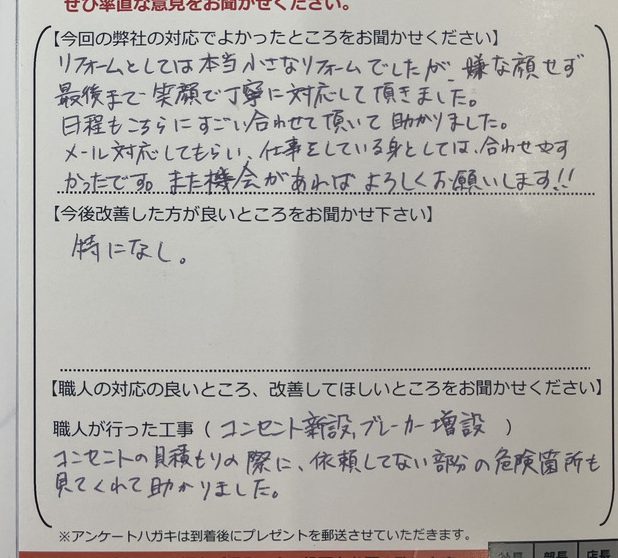 ぜひ率直な意見をお聞かせください。
【今回の弊社の対応でよかったところをお聞かせください】
リフォームとしては本当小さなリフォームでしたが、嫌な顔せず
最後まで笑顔で丁寧に対応して頂きました。
日程もこちらにすごい合わせて頂いて助かりました。
メール対応してもらい、仕事をしている身としては、合わせやす
かったです。また機会があればよろしくお願いします!!
【今後改善した方が良いところをお聞かせ下さい】
特になし。
【職人の対応の良いところ、改善してほしいところをお聞かせください】
職人が行った工事(コンセント新設,ブレーカー増設)
コンセントの見積もりの際に、依頼してない部分の危険箇所も
見てくれて助かりました。
※アンケートハガキは到着後にプレゼントを郵送させていただきます。
社長 部長 店長